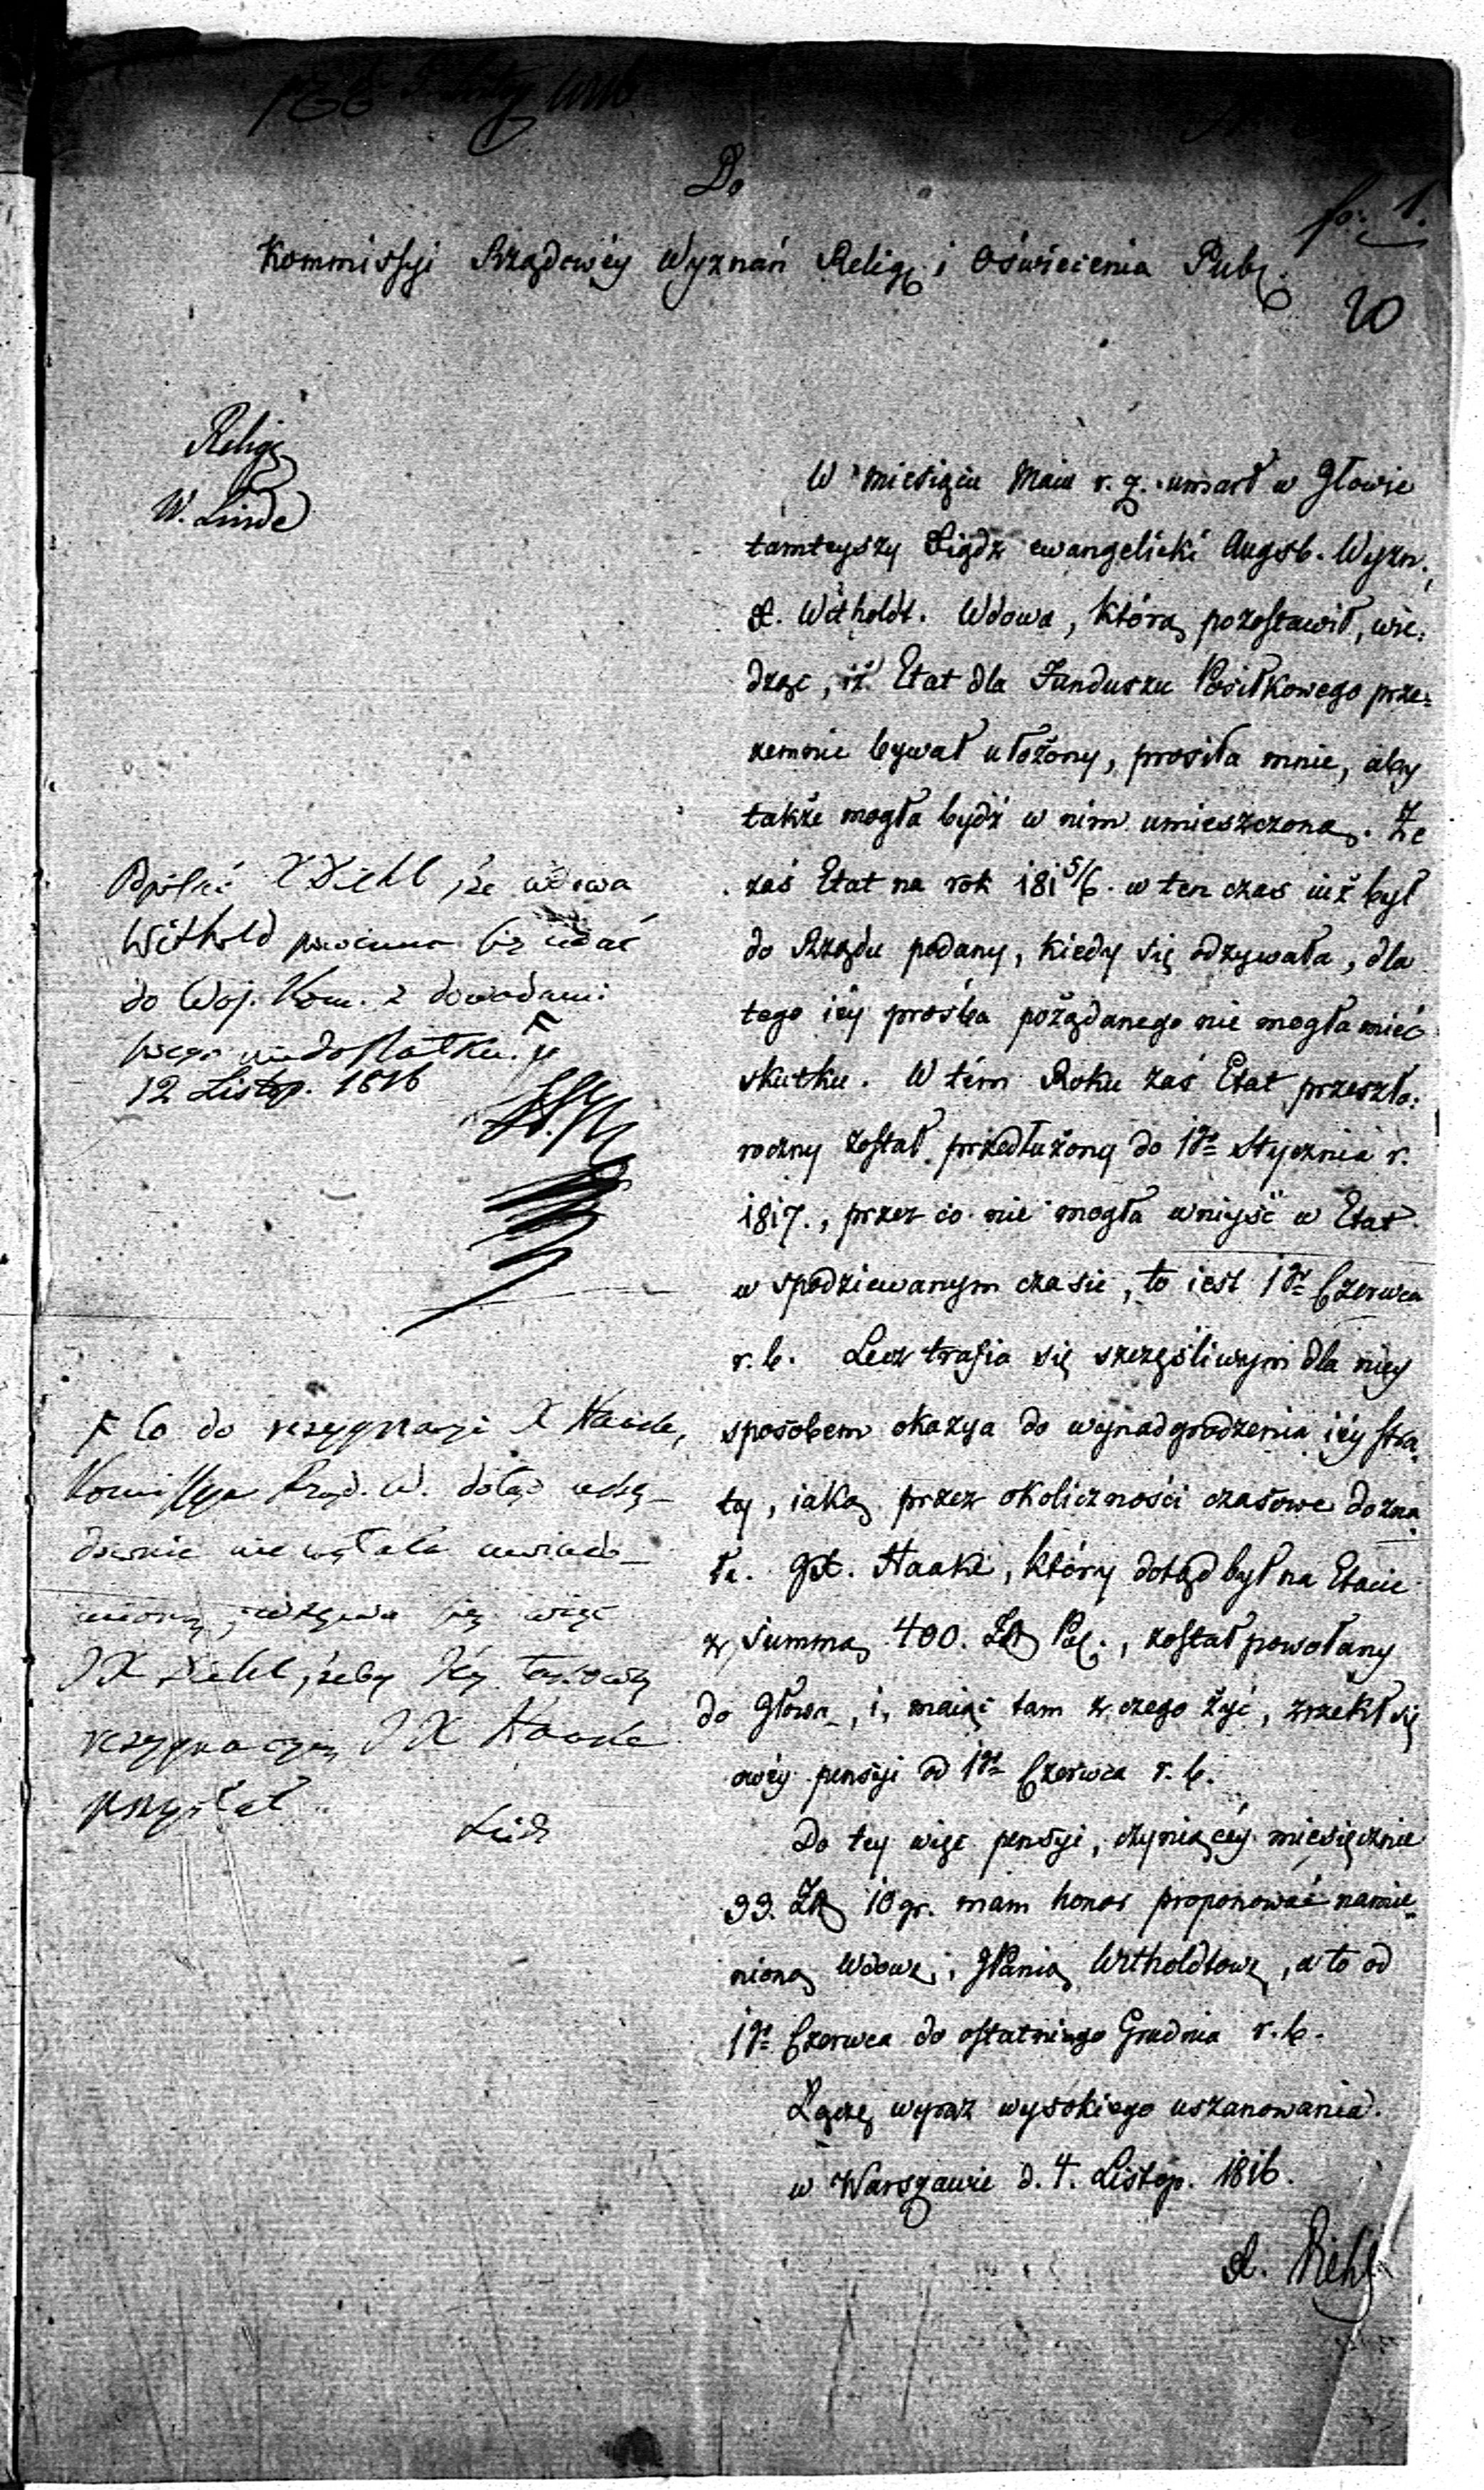 Do
fo: 1.
Kommissyi Rządowéy Wyznań Relig: i Oświecenia Publ:
20
Relig:
W. Linde
W miesiącu Maiu r. z. umarł w Głowie
tamteyszy Xiądz ewangelicki Augsb. Wyzn.,
X. Witholdt. Wdowa, którą pozostawił, wie:
dząc, iż Etat dla Funduszu Posiłkowego prze:
zemnie bywał ułożony, prosiła mnie, aby
także mogła bydź w nim umieszczoną. Że
zaś Etat na rok 1815/6. w ten czas iuż był
do Rządu podany, kiedy się odzywała, dla
tego iéy prośba pożądanego nie mogła mieć
skutku. W tém Roku zaś Etat przeszło:
roczny został przedłużony do 1go Stycznia r.
1817., przez co nie mogła wniyść w Etat
w spodziewanym czasie, to iest 1go Czerwca
r. b. Lecz trafia się szczęśliwym dla niey
sposobem okazya do wynadgrodzenia iéy stra:
ty, iaką przez okoliczności czasowe dozna:
ła. JX. Haake, który dotąd był na Etacie
z summą 400. Zł Pol:, został powołany
do Głowna, i, maiąc tam z czego żyć, zrzekł się
owéy pensyi od 1go Czerwca r. b.
Do tey więc pensyi, czyniącéy miesięcznie
33. Zł 10 gr. mam honor proponować namie:
nioną Wdowę, JPanią Witholdtowę, a to od
1go Czerwca do ostatniego Grudnia r. b.
Łączę wyraz wysokiego uszanowania.
w Warszawie d. 4. Listop. 1816.
X. Diehl
Odpisać X Diehl, że wdowa
Withold powinna się udać
do Woj. Kom. z dowodami
swego niedostatku. F
12 Listop. 1816
F Co do rezygnacyi X Haacke,
Kommissya Rząd. W. dotąd urzę–
downie nie została uwiado–
mioną, wzywa się więc
JX Diehl, żeby Jéy takową
rezygnacyą JX Haacke
przysłał.
Linde